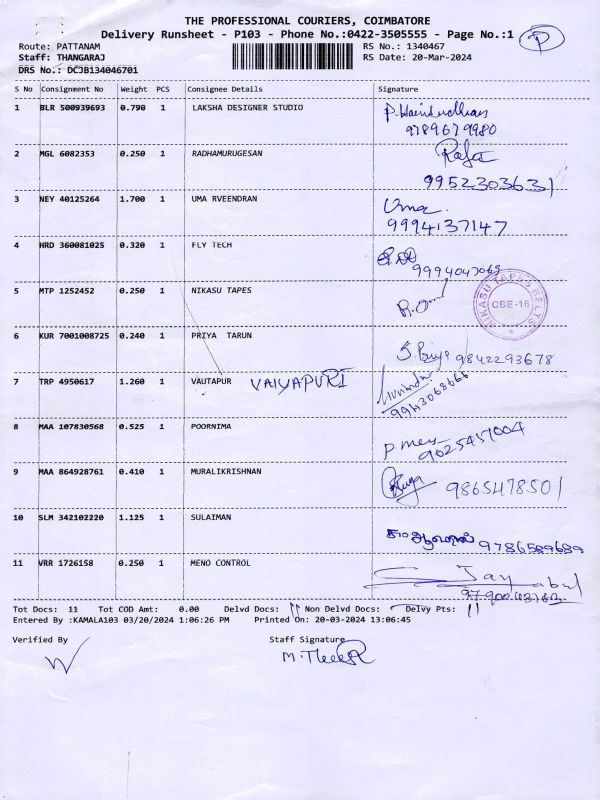 THE PROFESSIONAL COURIERS, COIMBATORE
Delivery Runsheet - P103 - Phone No.:0422-3505555 - Page No.:1 P
Route: PATTANAM RS No.: 1340467
Staff: THANGARAJ RS Date: 20-Mar-2024
DRS No.: DCJB134046701
S No Consignment No Weight PCS Consignee Details Signature
1 BLR 500939693 0.790 1 LAKSHA DESIGNER STUDIO
9789679980
2 MGL 6082353 0.250 1 RADHAMURUGESAN Raja
9952303631
3 NEY 40125264 1.700 1 UMA RVEENDRAN Uma
9994137147
4 HRD 360081025 0.320 1 FLY TECH
9994047069
5 MTP 1252452 0.250 1 NIKASU TAPES
NIKASU TAPES BELTS
CBE-16
6 KUR 7001008725 0.240 1 PRIYA TARUN S. Priya 9842293678
7 TRP 4950617 1.260 1 VAUTAPUR VAIYAPURI
9943068666
8 MAA 107830568 0.525 1 POORNIMA
9025457004
9 MAA 864928761 0.410 1 MURALIKRISHNAN 9865478501
10 SLM 342102220 1.125 1 SULAIMAN 9786589689
11 VRR 1726158 0.250 1 MENO CONTROL
Tot Docs: 11 Tot COD Amt: 0.00 Delvd Docs: 11 Non Delvd Docs: Delvy Pts: 11
Entered By :KAMALA103 03/20/2024 1:06:26 PM Printed On: 20-03-2024 13:06:45
Verified By Staff Signature